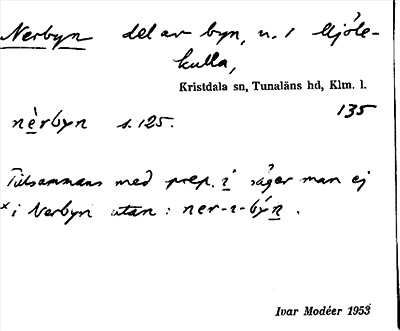 Nerbyn del av byn, n. 1 Mjöle-
kulla,
Kristdala sn, Tunaläns hd, Klm. l.
135
nèrbyn s. 125.
Tillsammans med prep. i säger man ej
× i Nerbyn utan: ner-ı-býn.
Ivar Modéer 1953